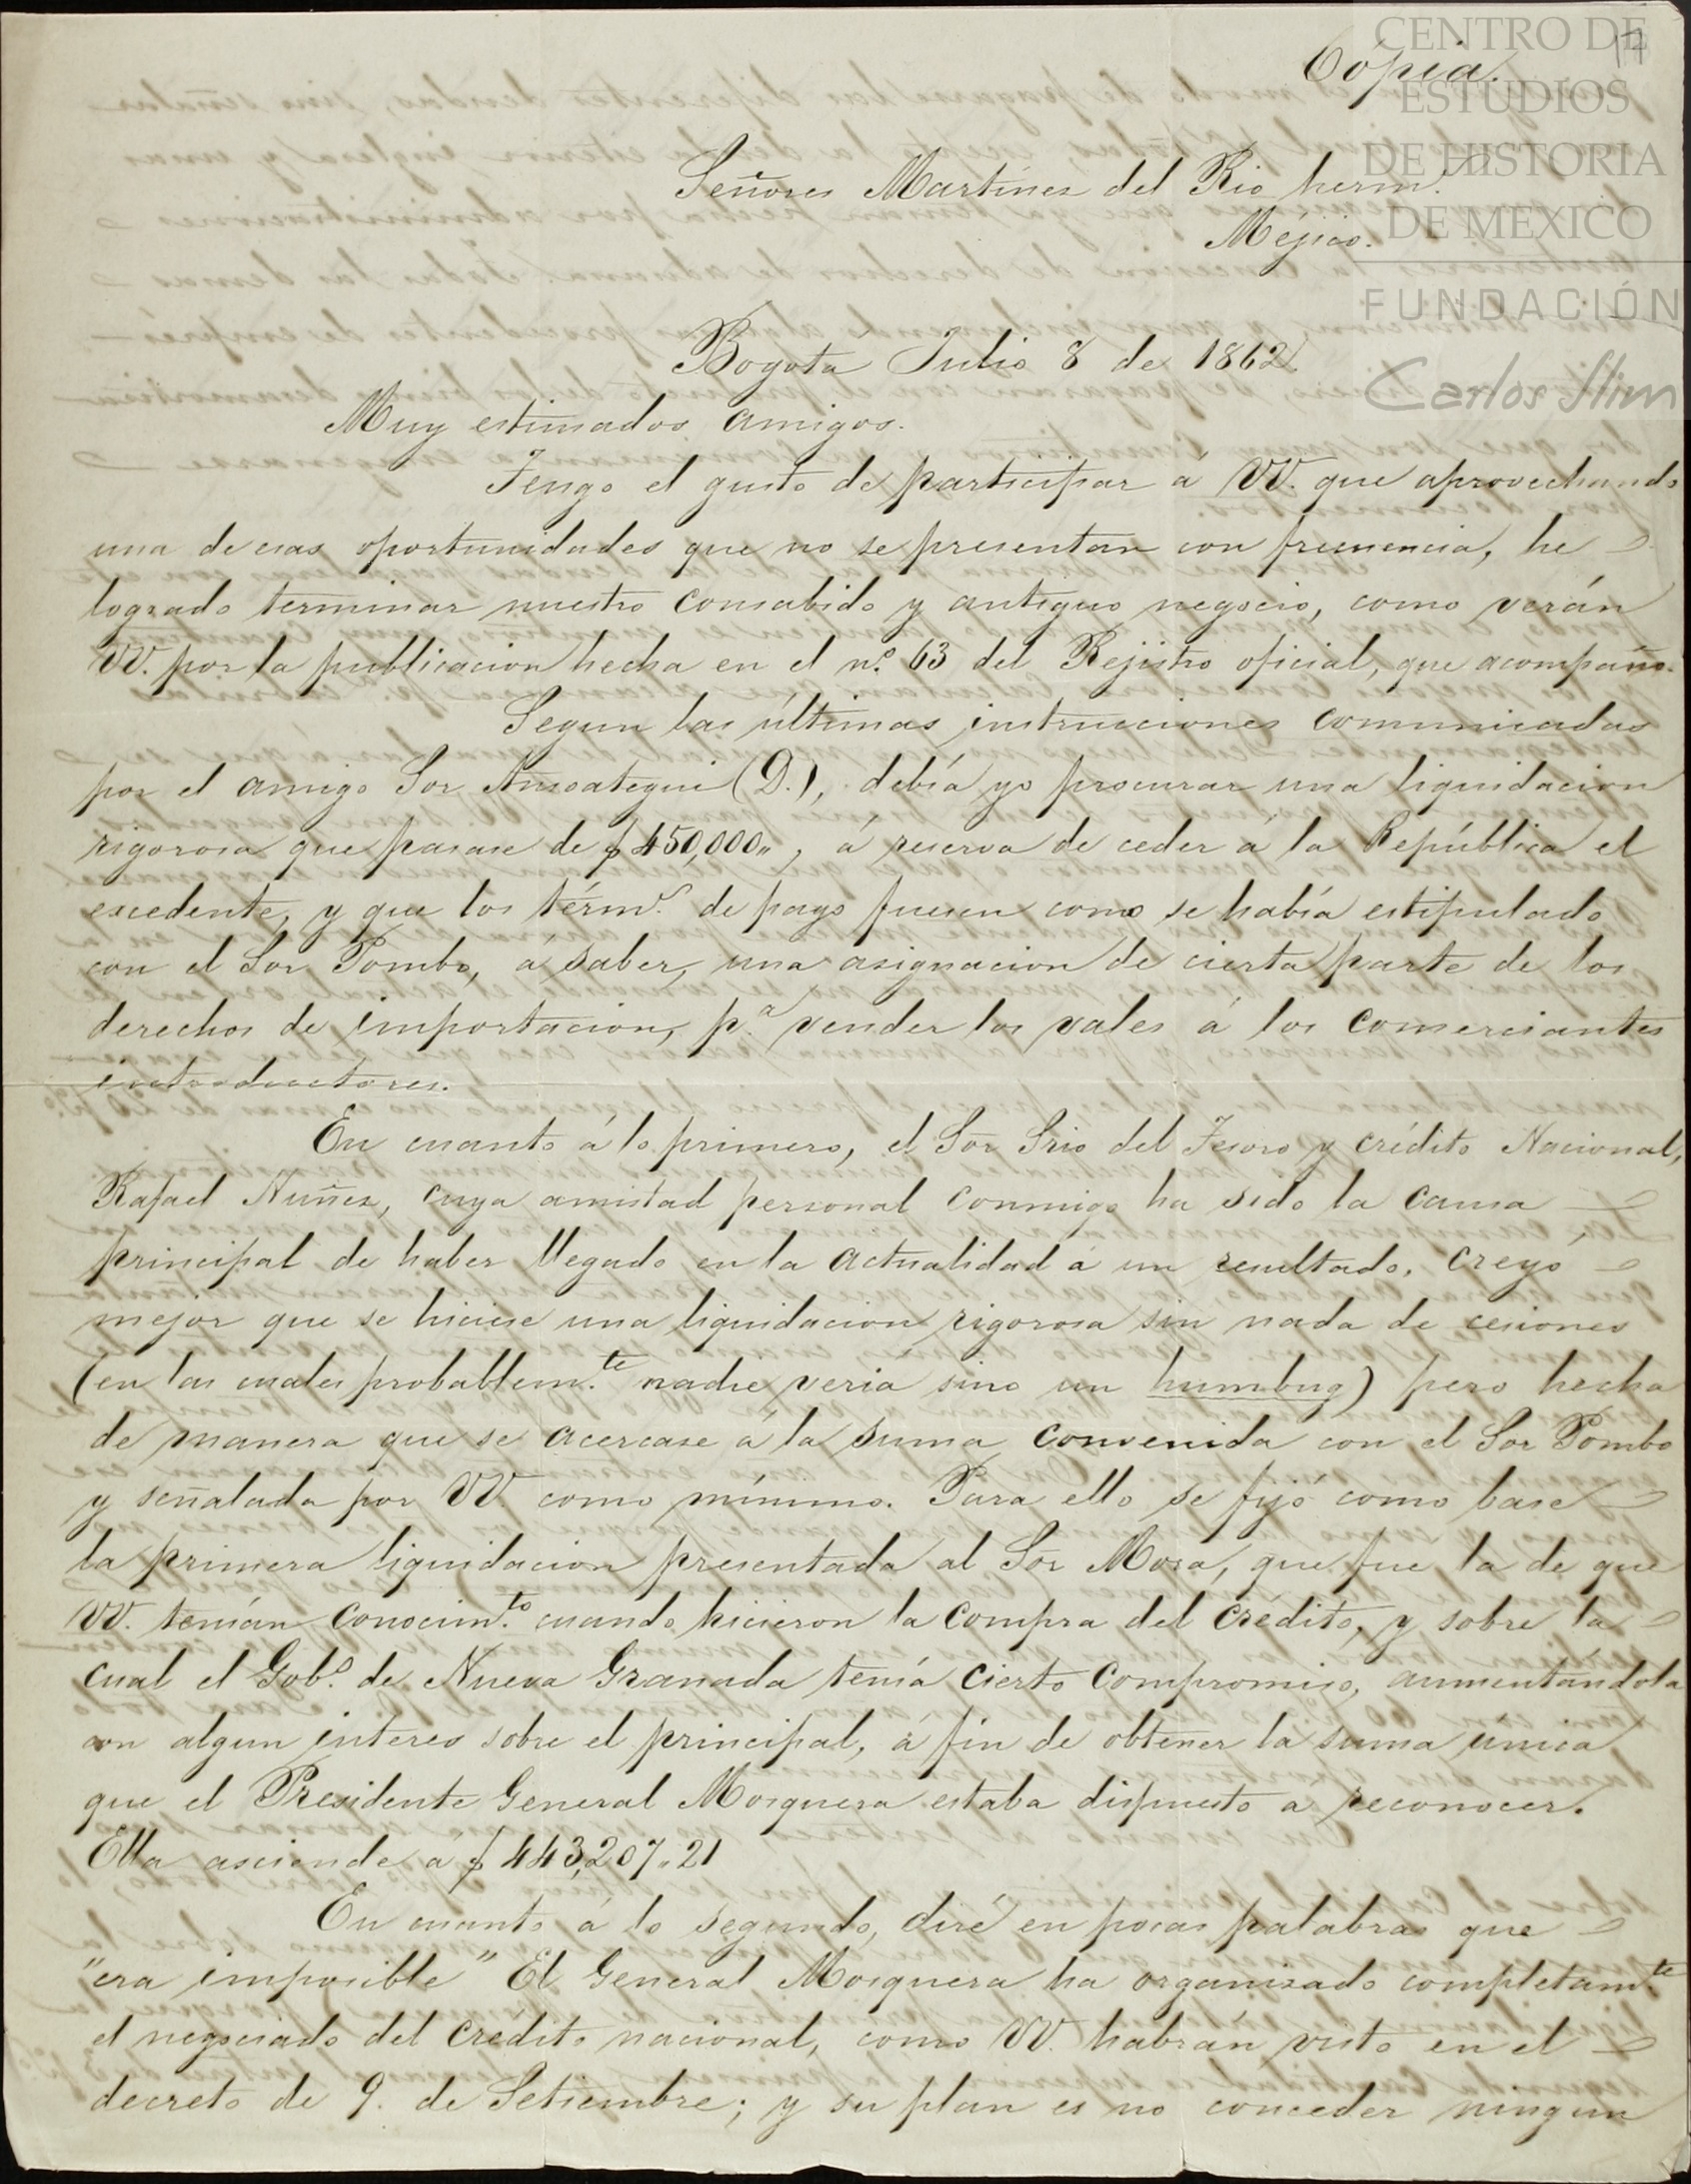 Cópia.
17
CENTRO DE
ESTUDIOS
DE HISTORIA
DE MEXICO
FUNDACIÓN
Carlos Slim
Señores Martínez del Rio herm.s
Méjico.
Bogotá Julio 8 de 1862.
Muy estimados amigos.
Tengo el gusto de participar á VV. que aprovechando
una de esas oportunidades que no se presentan con frecuencia, he
logrado terminar nuestro consabido y antiguo negocio, como verán
VV. por la publicacion hecha en el n.o 63 del Rejistro oficial, que acompaño.
Segun las últimas instrucciones comunicadas
por el amigo Sor Ansoategui (D.), debía yo procurar una liquidacion
rigorosa que pasase de $450,000,,, á reserva de ceder á la República el
escedente, y que los térm.s de pago fuesen como se había estipulado
con el Sor Pombo, á saber, una asignacion de cierta parte de los
derechos de importacion, p.a vender los vales á los comerciantes
introductores.
En cuanto á lo primero, el Sor Srio del Tesoro y crédito Nacional,
Rafael Nuñez, cuya amistad personal conmigo ha sido la causa
principal de haber llegado en la actualidad á un resultado, creyó
mejor que se hiciese una liquidacion rigorosa sin nada de cesiones
(en las cuales probablem.te nadie vería sino un humbug) pero hecha
de manera que se acercase á la suma convenida con el Sor Pombo
y señalada por VV. como mínimo. Para ello se fijó como base
la primera liquidacion presentada al Sor Mora, que fué la de que
VV. tenían conocim.to cuando hicieron la compra del crédito, y sobre la
cual el Gob.o de Nueva Granada tenía cierto compromiso, aumentándola
con algun interes sobre el principal, á fin de obtener la suma única
que el Presidente General Mosquera estaba dispuesto á reconocer.
Ella asciende á $443,207,,21
En cuanto á lo segundo, diré en pocas palabras que
"era imposible" El General Mosquera ha organizado completam.te
el negociado del crédito nacional, como VV. habrán visto en el
decreto de 9. de Setiembre; y su plan es no conceder ningun